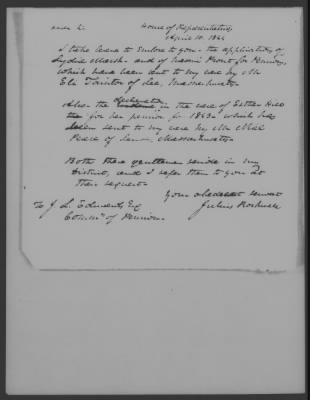 House of Representatives
April 10. 1844
I take leave to enclose to you - the application of
Lydia Marsh - and of Naomi Prout for Pensions,
which have been sent to my care by Mr
Eli Tainter of Lee, Massachusetts.
Also the Declaration in the case of Esther
for her pension for 1843 - which has
been sent to my care by Mr
Peace of Massachusetts.
Both these gentlemen reside in my
District, and I refer them to you at
their request.
Your obedient servant
Julius Rockwell
To J. L. Edwards, Esq
Commr of Pensions.